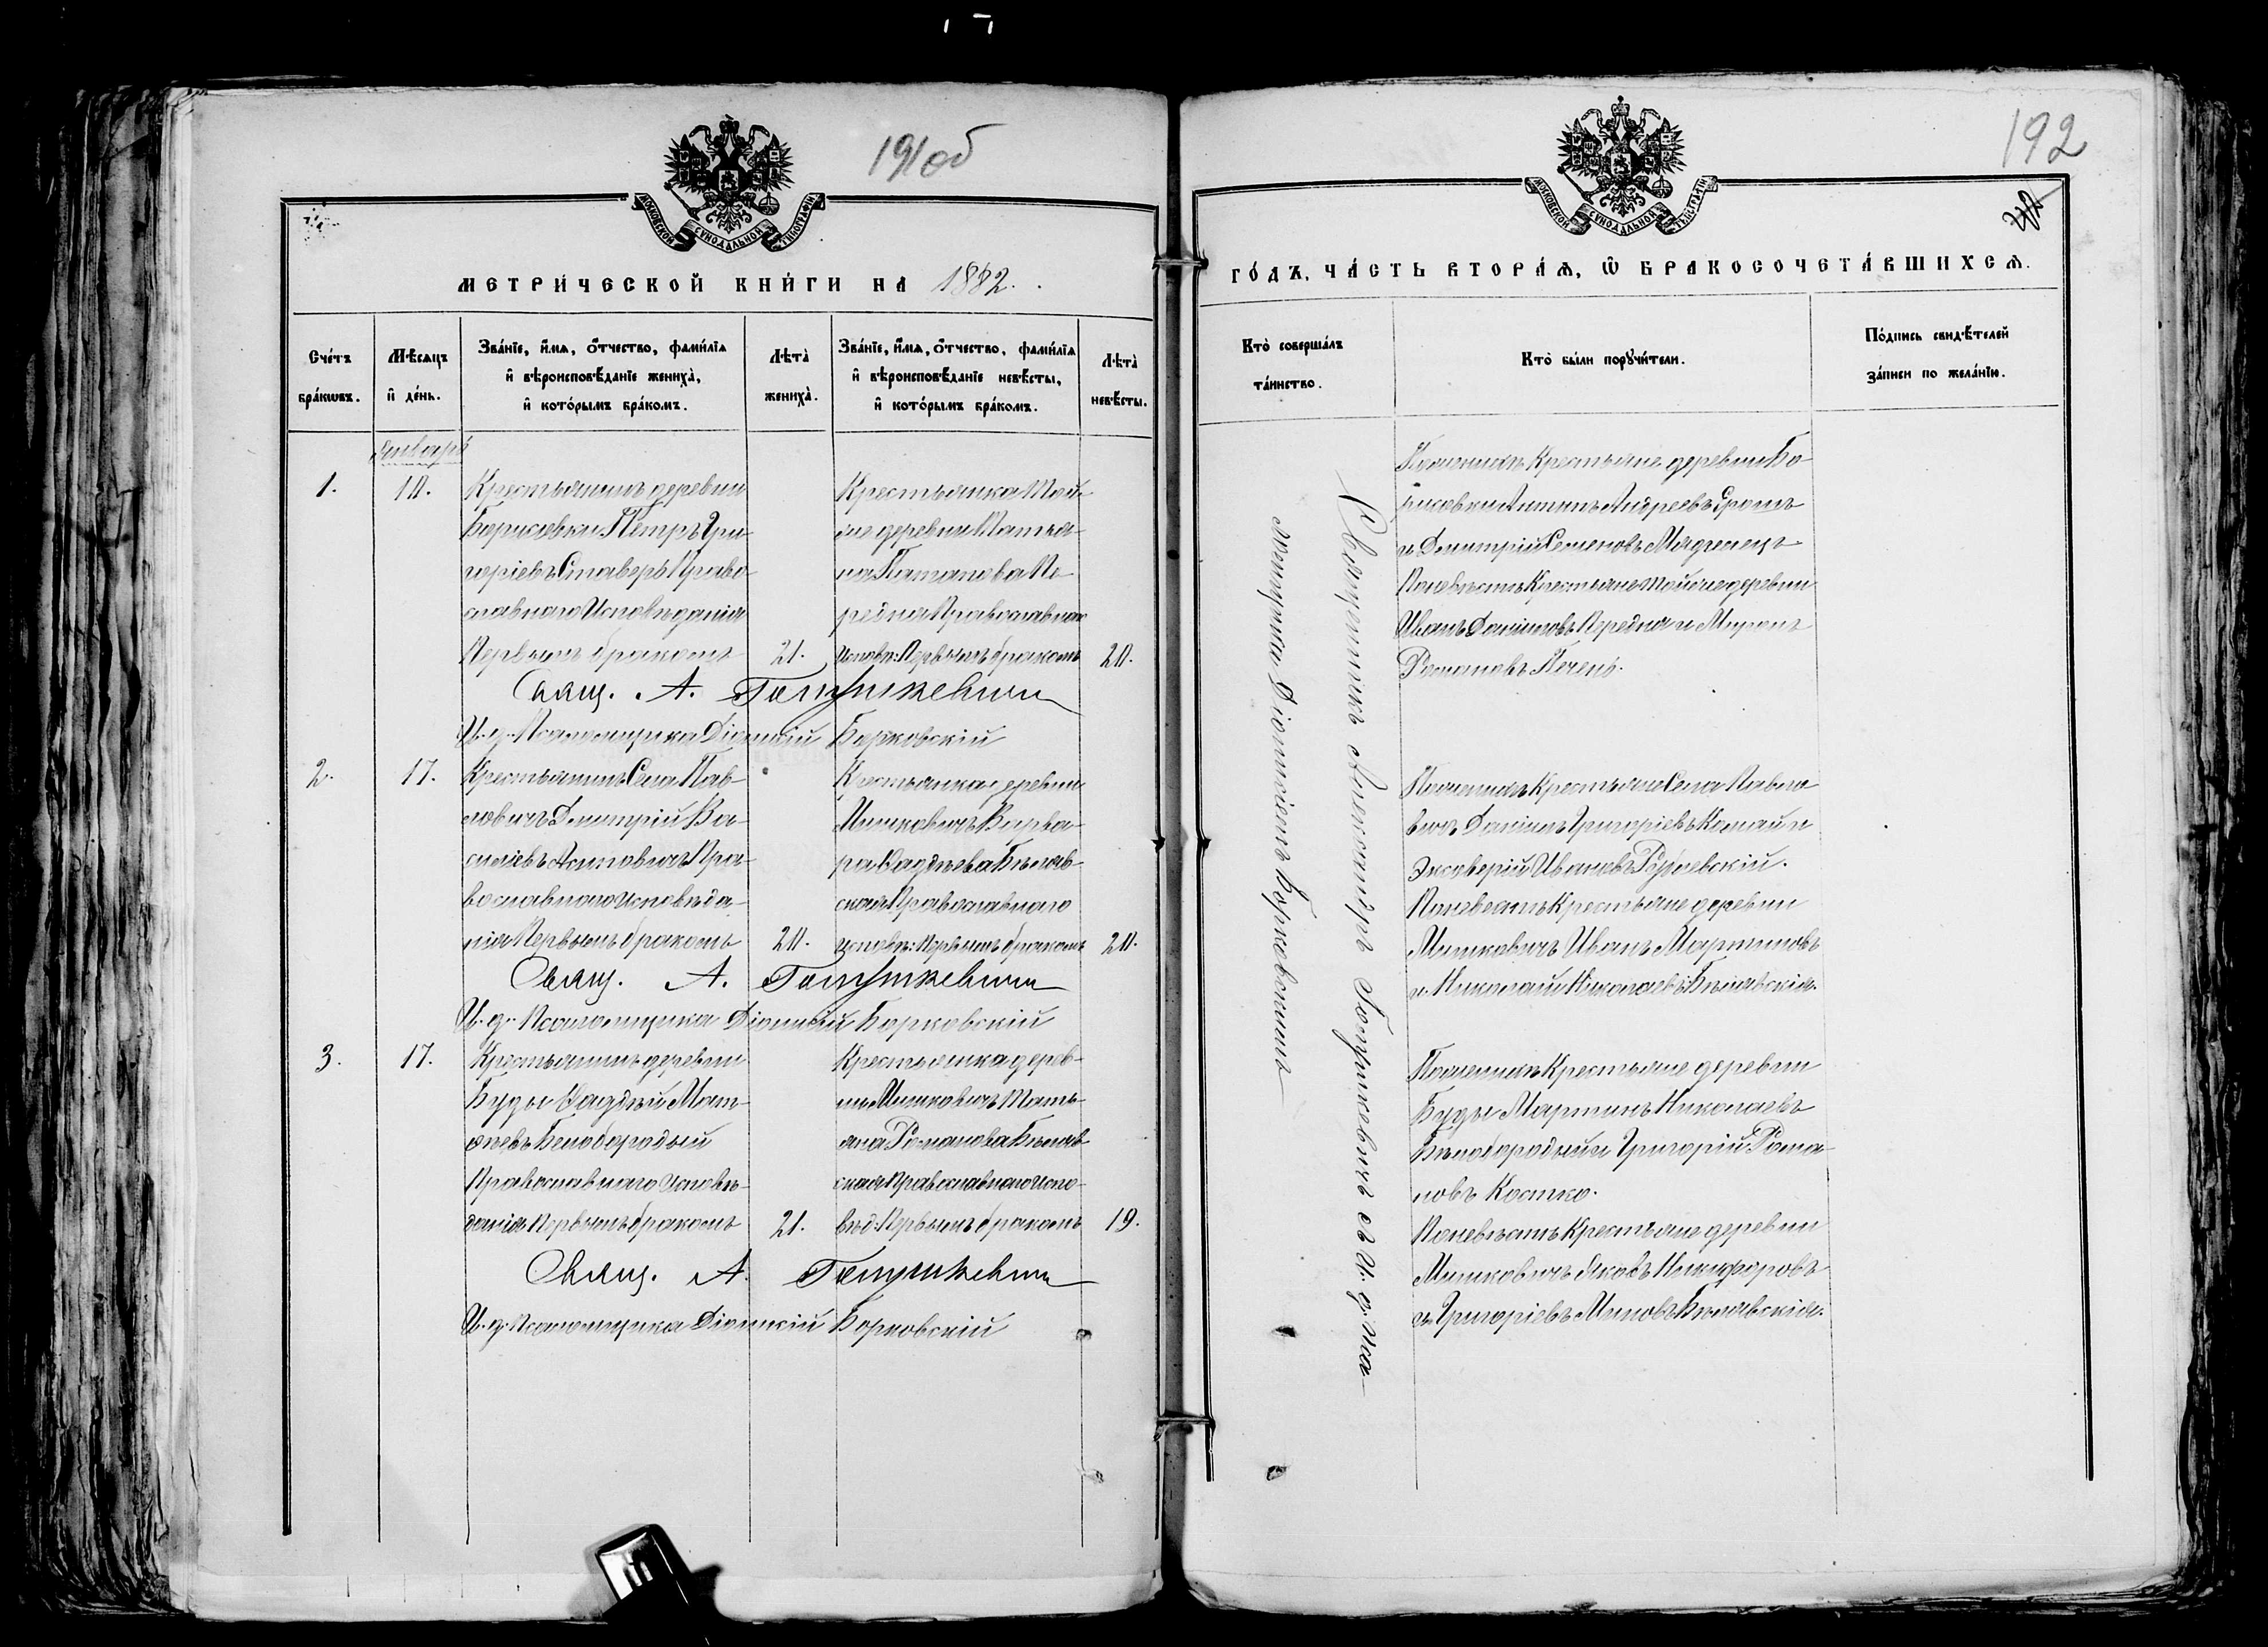 191об
МОСКОВСКОЙ СѴНОДАЛЬНОЙ ТИПОГРАФІИ
МЕТРИ́ЧЕСКОЙ КНИ́ГИ НА 1882.
Сче́тъ бра́кѡвъ.
Мѣ́сяцъ и҆ де́нь.
Зва́нїе, и҆́мѧ, ѻ҆́тчество, фами́лїѧ и҆ вѣроисповѣ́данїе жениха̀, и҆ кото́рымъ бра́комъ.
Лѣта̀ жениха̀.
Зва́нїе, и҆́мѧ, ѻ҆́тчество, фами́лїѧ и҆ вѣроисповѣ́данїе невѣ́сты, и҆ кото́рымъ бра́комъ.
Лѣта̀ невѣ́сты.
Январь
1.
10.
Крестьянинъ деревни
Борисовки Петръ Гри-
горіевъ Ставеръ Право-
славнаго Исповѣданія
Первымъ бракомъ
21.
Крестьянка той-
же деревни
Потапова Пе-
редня Православнаго
исповѣ: Первымъ бракомъ
20.
Свящ. А. Гатушкевичъ
И. д. Псаломщика Діонисій Борковскій
2.
17.
Крестьянинъ Села Пав-
ловичъ Дмитрій Ва-
силіевъ Пра-
вославнаго исповѣда-
нія Первымъ бракомъ
20.
Крестьянка деревни
Мишковичъ Варва-
ра Фаддѣева Бѣляв-
ская Православнаго
исповѣ: Первымъ бракомъ
20.
Свящ. А. Гатушкевичъ
И. д. Псаломщика Діонисій Борковскій
3.
17.
Крестьянинъ деревни
Буды Фаддей Мат-
ѳеевъ Белобородый
Православнаго исповѣ-
данія Первымъ бракомъ
21.
Крестьянка дерев-
ни Мишковичъ Тать-
яна Романова Бѣляв-
ская Православнаго испо-
вѣд: Первымъ бракомъ
19.
Свящ. А. Гатушкевичъ
И. д. Псаломщика Діонисій Борковскій
192
МОСКОВСКОЙ СѴНОДАЛЬНОЙ ТИПОГРАФІИ
ГО́ДЪ, ЧА́СТЬ ВТОРА́Ѧ, Ѡ҆ БРАКОСОЧЕТА́ВШИХСѦ.
Кто̀ соверша́лъ та́инство.
Кто̀ бы́ли порꙋчи́тели.
По́дпись свидѣ́телей за́писи по жела́нїю.
Священникъ Александръ Гатушкевичъ съ И. д. Пса-
ломщика Діонисіемъ Борковскимъ
По женихѣ Крестьяне деревни Бо-
рисовки Антипъ Андреевъ
и Дмитрій Семеновъ
По невѣстѣ Крестьяне той же деревни
Иванъ Данииловъ Передня и Миронъ
Романовъ Печень.
По женихѣ Крестьяне Села Павло-
вичъ Даніилъ Григоріевъ и
Ивановъ
По невестѣ Крестьяне деревни
Мишковичъ Иванъ Мартиновъ
и Николай Николаевъ Бѣлявскія.
По женихѣ Крестьяне деревни
Буды Мартинъ Николаевъ
Бѣлобородый и Григорій Рома-
новъ Костко.
По невѣстѣ Крестьяне деревни
Мишковичъ Яковъ Никифоровъ
и Григоріевъ Бѣлявскія.